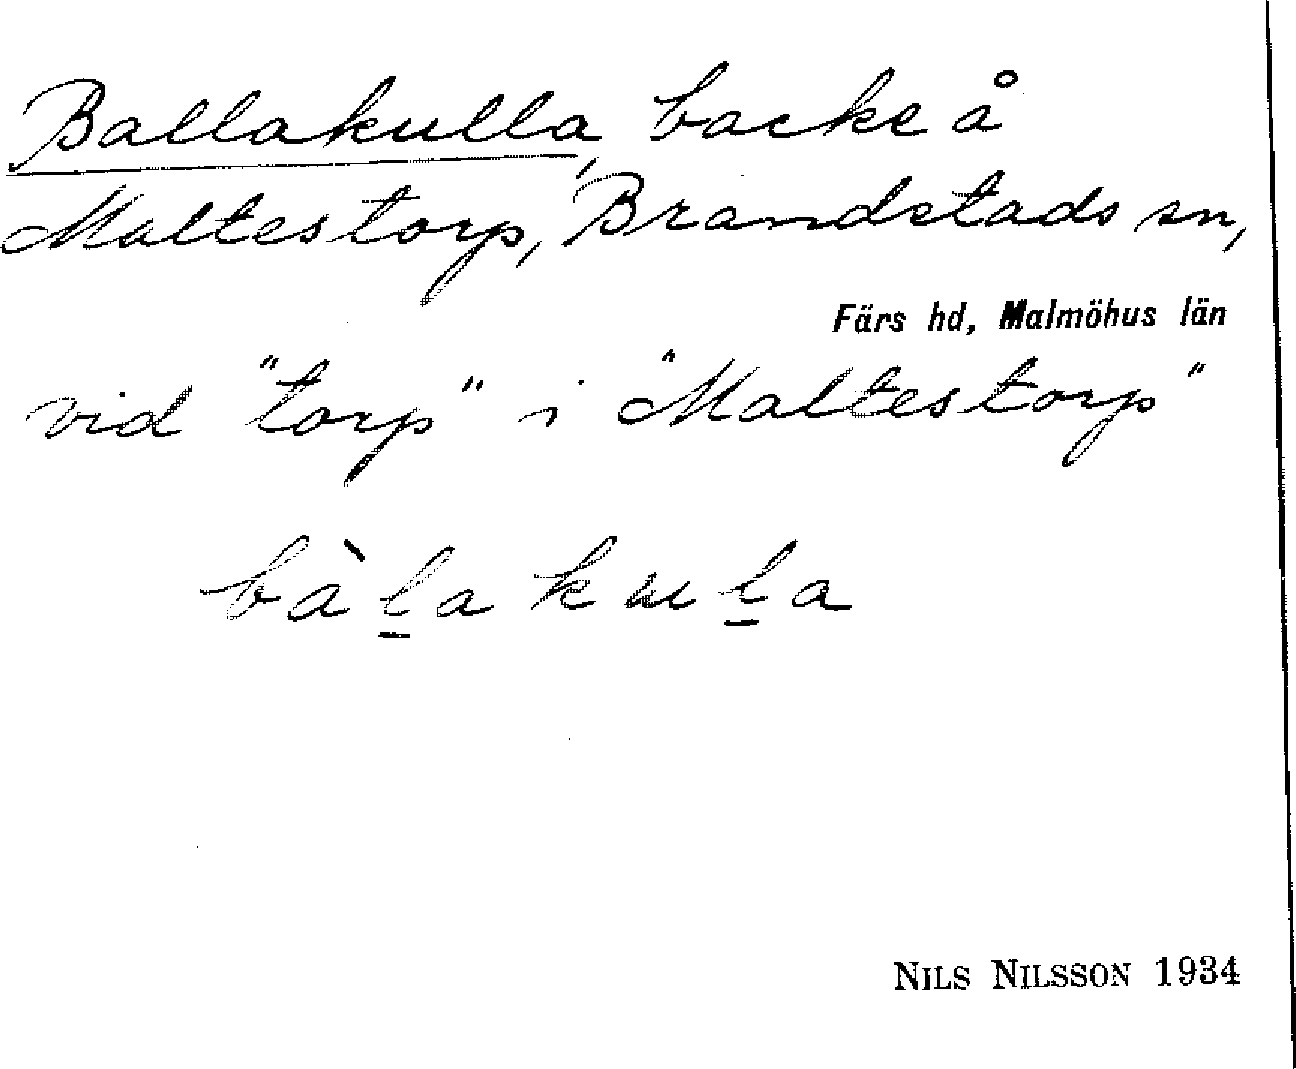 Ballakulla, backe å
Maltestorp, Brandstads sn,
Färs hd, Malmöhus län
vid "torp" i "Maltestorp"
bàl̲akul̲a
NILS NILSSON 1934